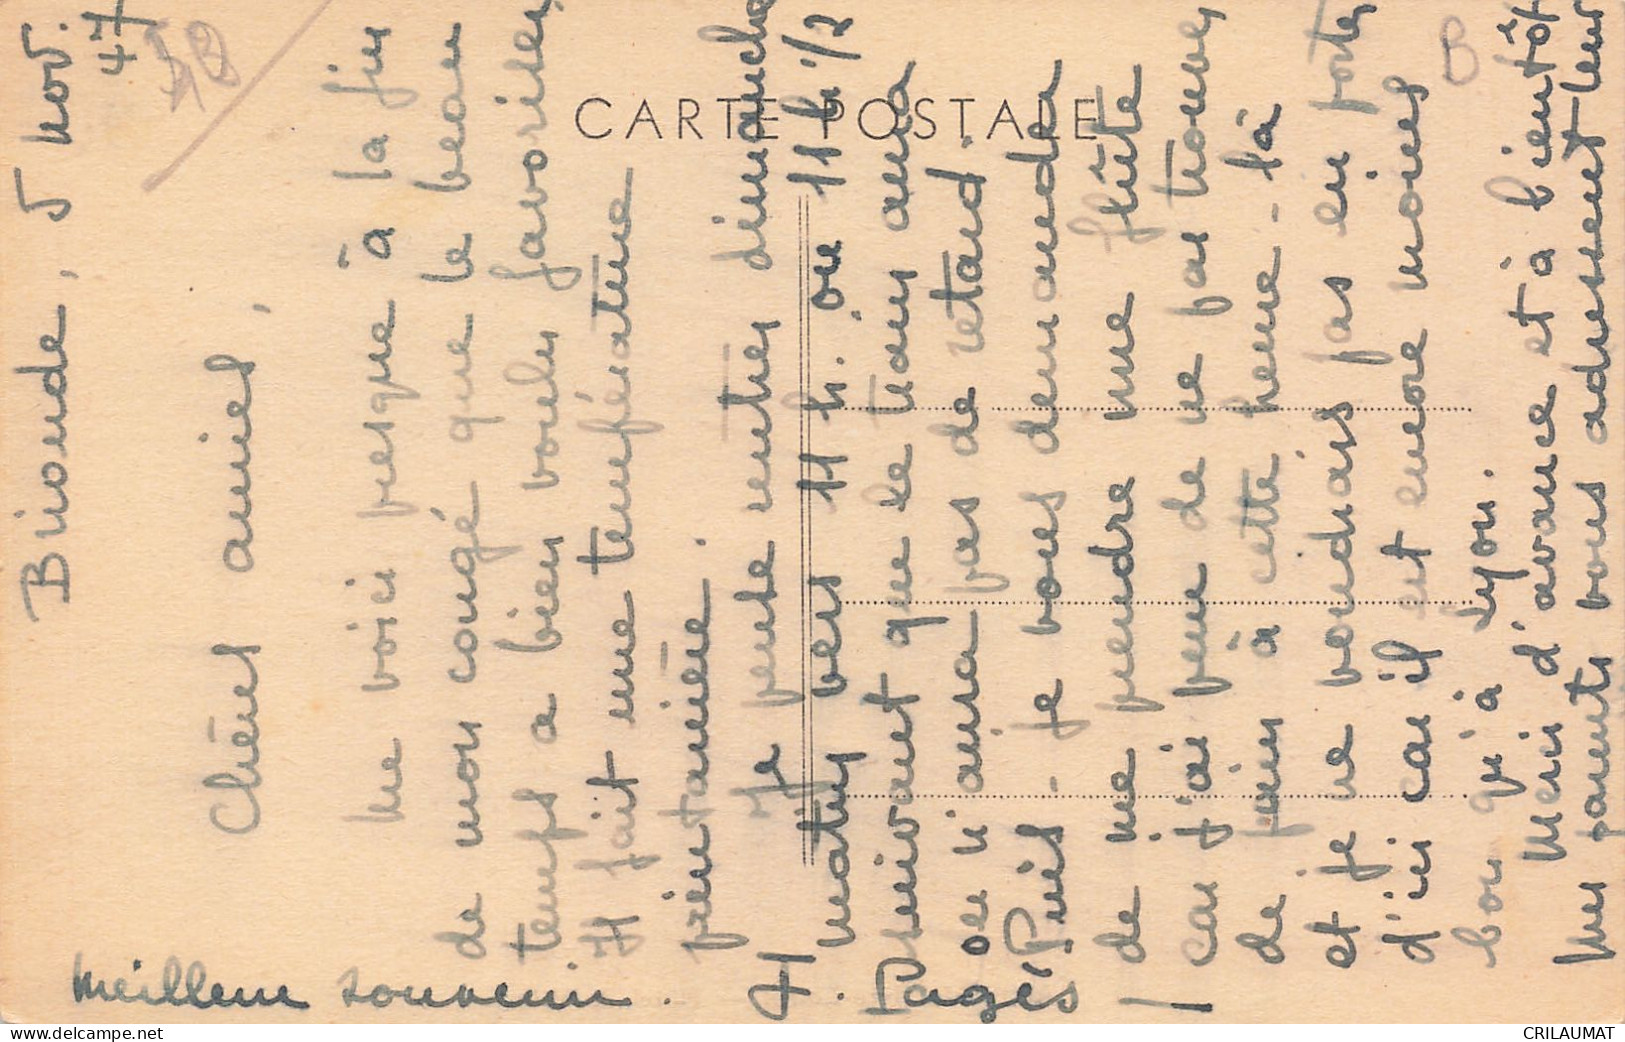 Birsonde, 5 nov.
47
Chères amies,
me voici presque à la fin
de mon congé que le beau
temps a bien voulu favoriser
Il fait une température
printanière.
Je pense rentrer dimanche
matin vers 11 h. ou 11 h 1/2
suivant que le train aura
ou n'aura pas de retard.
Puis-je vous demander
de me prendre une flûte
car j'ai peur de ne pas trouver
de pain à cette heure-là
et je ne voudrais pas en porter
d'ici car il est encore moins
bon qu'à Lyon.
Merci d'avance et à bientôt
Mes parents vous adressent leur
meilleur souvenir.
H. Pagès
CARTE POSTALE
B
CRILAUMAT
delcampe.net